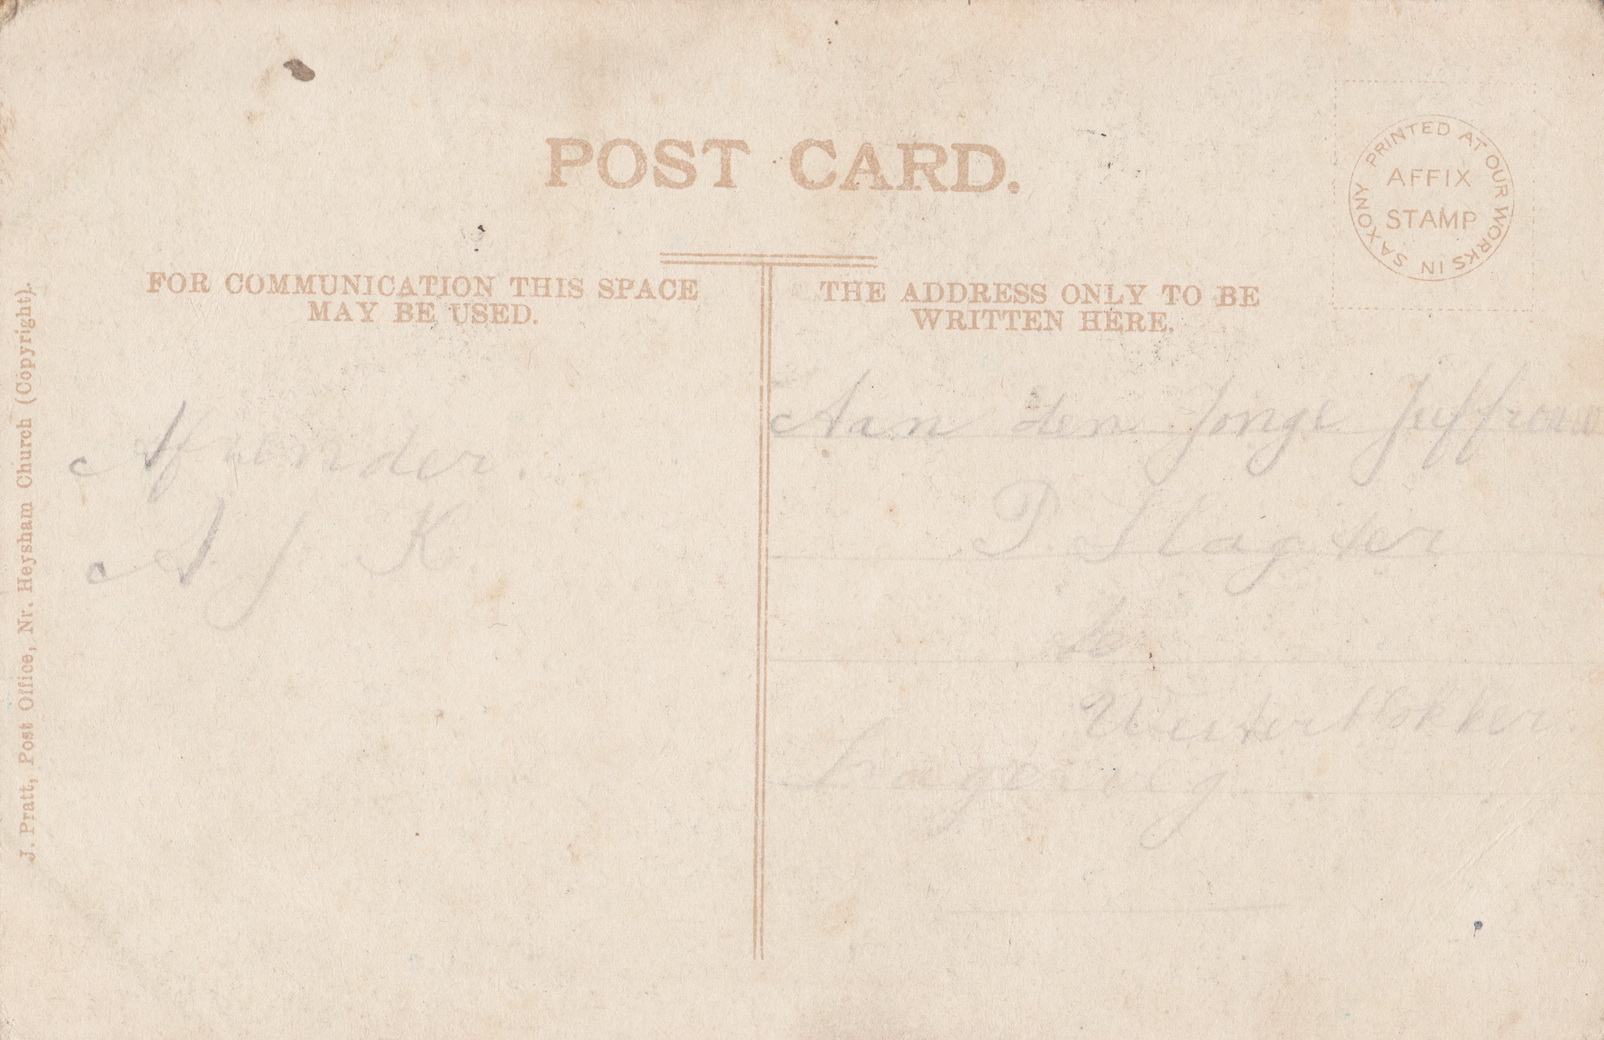 POST CARD.
PRINTED AT OUR WORKS IN SAXONY
AFFIX
STAMP
FOR COMMUNICATION THIS SPACE
MAY BE USED.
THE ADDRESS ONLY TO BE
WRITTEN HERE.
Afzender.
A J K.
Aan den Jonge Juffrouw
P. Slagter
te
Westerblokker.
Lageweg
J. Pratt, Post Office, Nr. Heysham Church (Copyright).